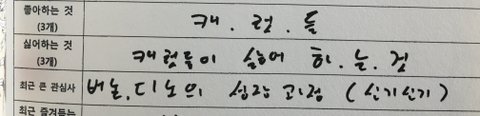 좋아하는 것 캐.럿.들
(3개)
싫어하는 것 캐럿들이 싫어 하.는.것
(3개)
최근 큰 관심사 버논,디노의 성장 과정 (신기신기)
최근 즐겨듣는